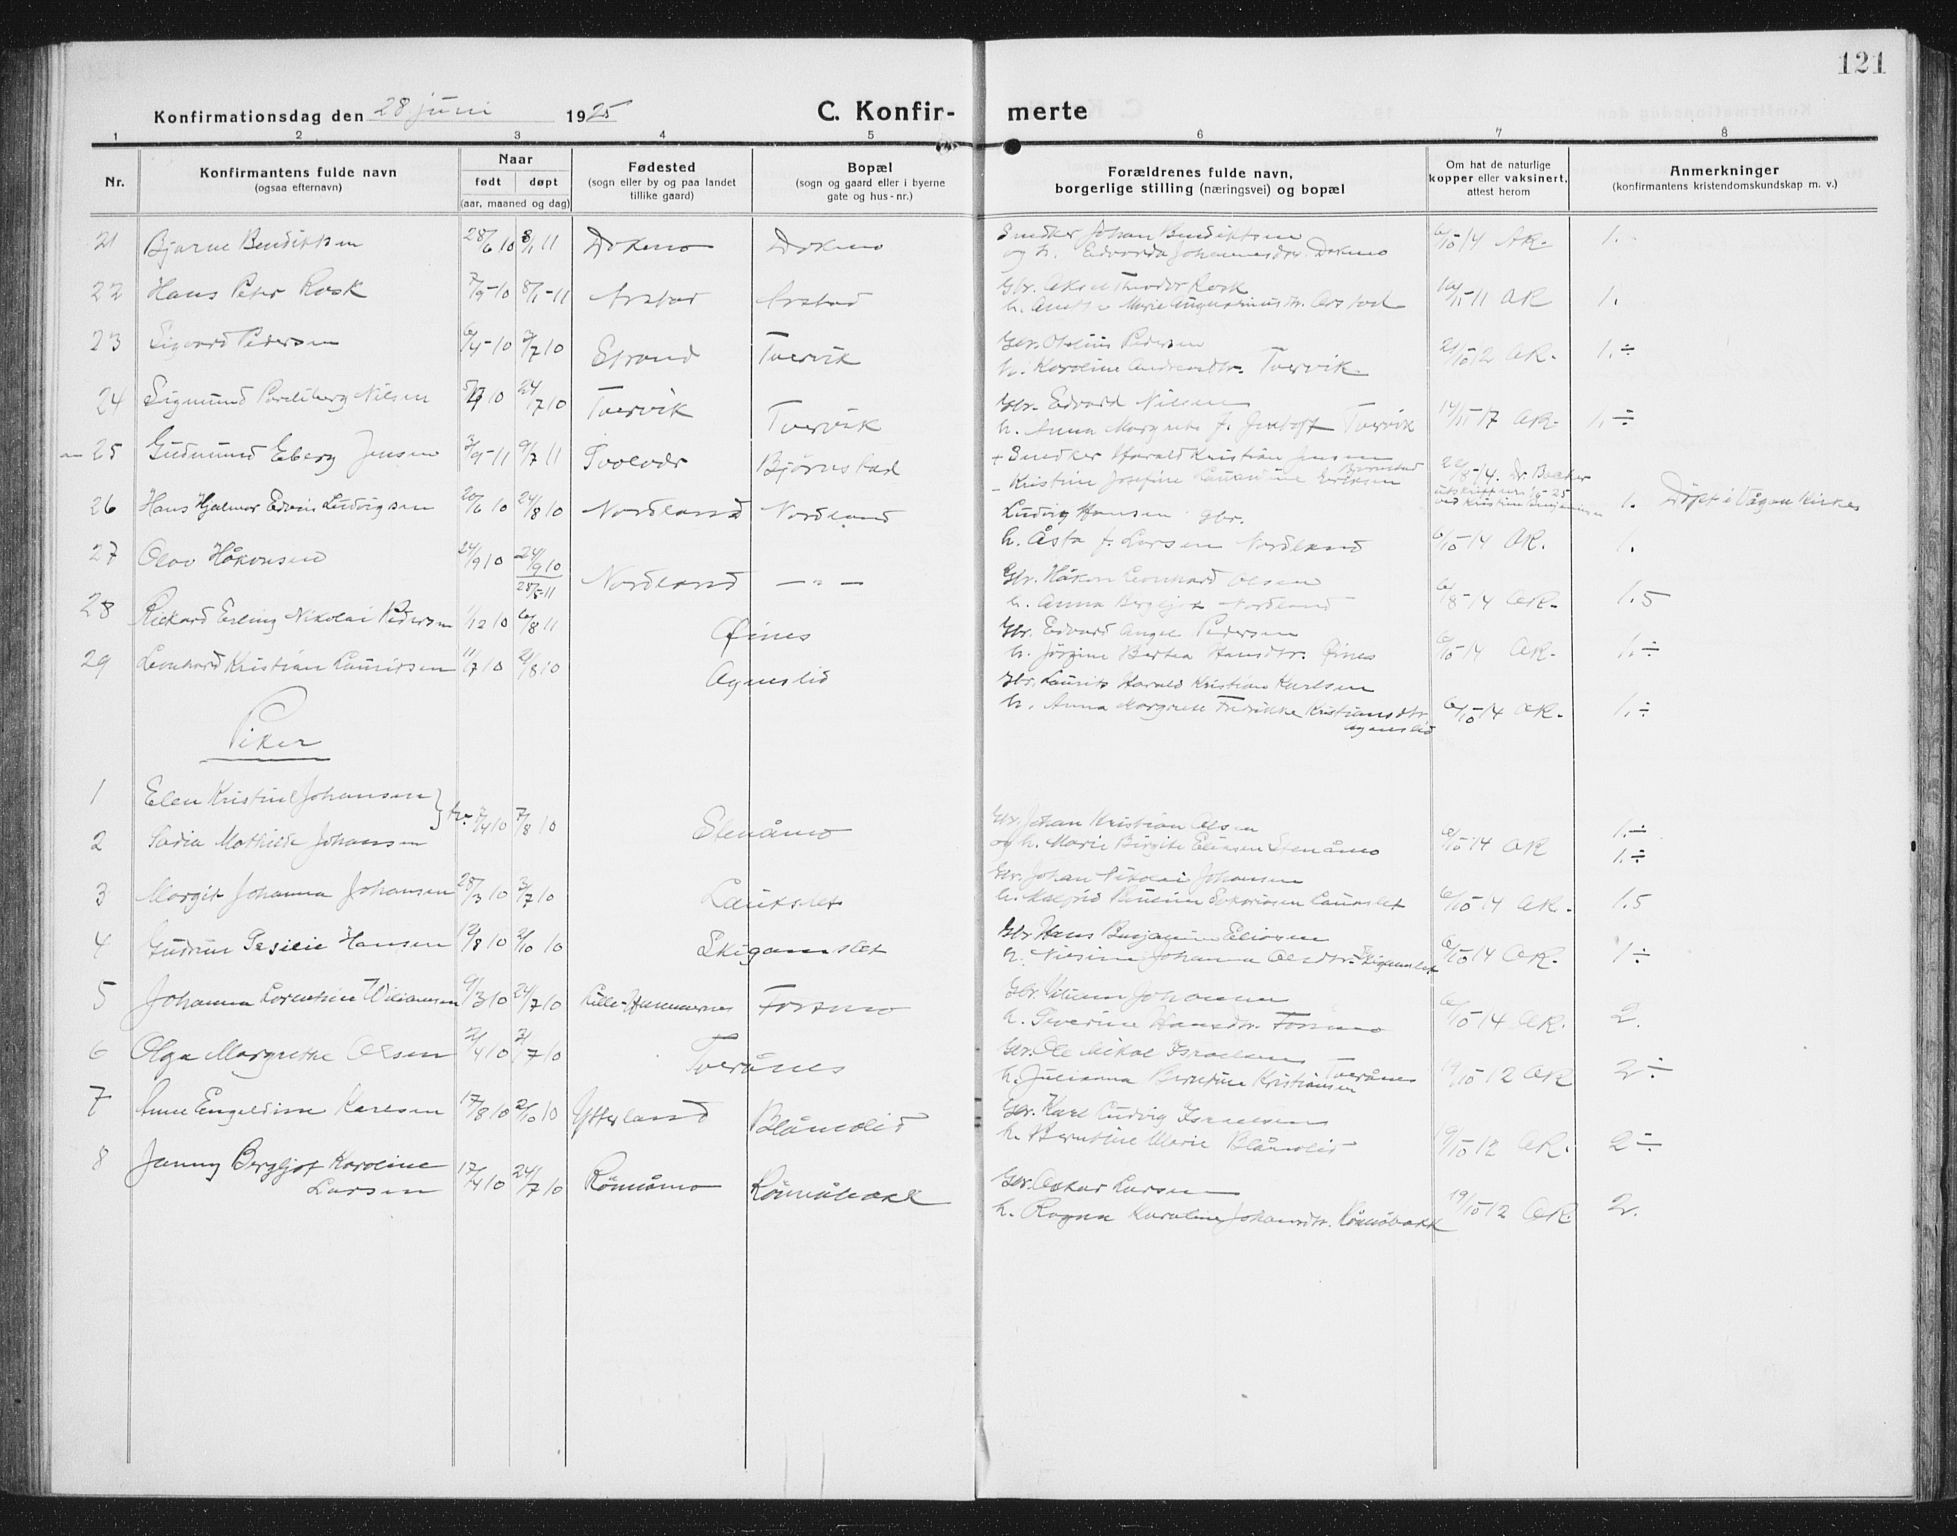 121
Konfirmationsdag den 28 juni 1925
C. Konfir- merte
1 2 3 4 5 6 7 8
Nr.
Konfirmantens fulde navn
(ogsaa efternavn)
Naar
født døpt
(aar, maaned og dag)
Fødested
(sogn eller by og paa landet
tillike gaard)
Bopæl
(sogn og gaard eller i byerne
gate og hus-nr.)
Forældrenes fulde navn,
borgerlige stilling (næringsvei) og bopæl
Om hat de naturlige
kopper eller vaksinert,
attest herom
Anmerkninger
(konfirmantens kristendomskundskap m. v.)
21 Bjarne Bendiktsen 28/6 10 8/1 11 Dokmo Dokmo
Snedker Johan Bendiktsen
og h. Edvarda Johannesdtr. Dokmo 6/10 14 AK. 1.
22 Hans Peter Rosk 7/9-10 8/1-11 Arstad Arstad
Gbr. Aksel Theodor Rosk
h. Marie Arstad 11 AK 1.
23 Sigvard Pedersen 6/4-10 3/7 10 Strand Tvervik
Gbr. Pedersen
h. Karoline Andreasdtr. Tvervik 21/10 12 AK. 1.÷
24 Sigmund Nilsen 10 24/7 10 Tvervik Tvervik
Gbr. Edvard Nilsen
h. Anna Margrethe f. Jentoft Tvervik 14/11 17 AK. 1.÷
25 Gudmund Eberg Jensen 3/9-11 9/7 11 Svolvær Bjørnstad
+ Snedker Harald Kristian Jensen
- Kristine Josefine Eriksen Bjørnstad 14. Dr. Becker
26 Hans Hjalmar Edvin Ludvigsen 20/6 10 24/8 10 Nordland Nordland
Ludvig Hansen gbr. 1. Døpt i Vågan kirke
h. Åsta f. Larsen Nordland 6/10 14 AK. 1.
27 Olav Håkonsen 24/9 10 24/9 10
28/5-11 Nordland — „ —
Gbr. Håkon Leonhard Olsen
h. Anna Bergljot Nordland 6/8-14 AK. 1.5
28 Rickard Erling Nikolai Pedersen 1/12 10 6/8 11 Øines
Gbr. Edvard Angel Pedersen
h. Jørgine Berthea Hansdtr. Øines 6/10-14 AK. 1.÷
29 Leonhard Kristian Lauritsen 11/7 10 21/8 10 Agnuslid
Gbr. Laurits Harald Kristian Karlsen
h. Anna Margrete Fredrikke Kristiansdtr.
Agnuslid 6/10-14 AK. 1.÷
Piker
1 Elen Kristine Johansen } tv. 2/4 10 7/8 10
2 Sofia Mathilde Johansen Stenåmo
Gbr. Johan Kristian Olsen 1.÷
og h. Marie Birgite Eliasen Stenåmo 6/10 14 AK 1.÷
3 Margit Johanna Johansen 28/3 10 3/7 10 Laukslet
Gbr. Johan Nikolai Johansen
h. Laukslet 6/10 14 AK. 1.5
4 Gudrun Hansen 12/8 10 2/10 10 Skigamslet
Gbr. Hans Benjamin Eliasen
h. Johanna Olsdtr. Skigamslet 6/10 14 AK. 1÷
5 Johanna Lorentsine Wiliamsen 9/3 10 24/7 10 Lille-Hammernes Forsmo
Gbr. Johansen
h. Severine Hansdtr. Forsmo 6/10 14 AK. 2.
6 Olga Margrethe Olsen 2/4 10 3/7 10 Tverånes
Gbr. Ole Mikal Israelsen
h. Julianna Berntine Kristiansen Tverånes 19/10 12 AK 2÷
7 Anne Engeldine Karlsen 17/8 10 2/10 10 Ytterland Blåmolid
Gbr. Karl Ludvig Israelsen
h. Berntine Marie Blåmolid 19/10 12 AK. 2÷
8 Jenny Bergljot Karoline
Larsen 17/4 10 24/7 10 Rönnåmo Rönnåbakk
Gbr. Oskar Larsen
h. Ragna Karoline Johansdtr. Rönnåbakk 19/10 12 AK 2.